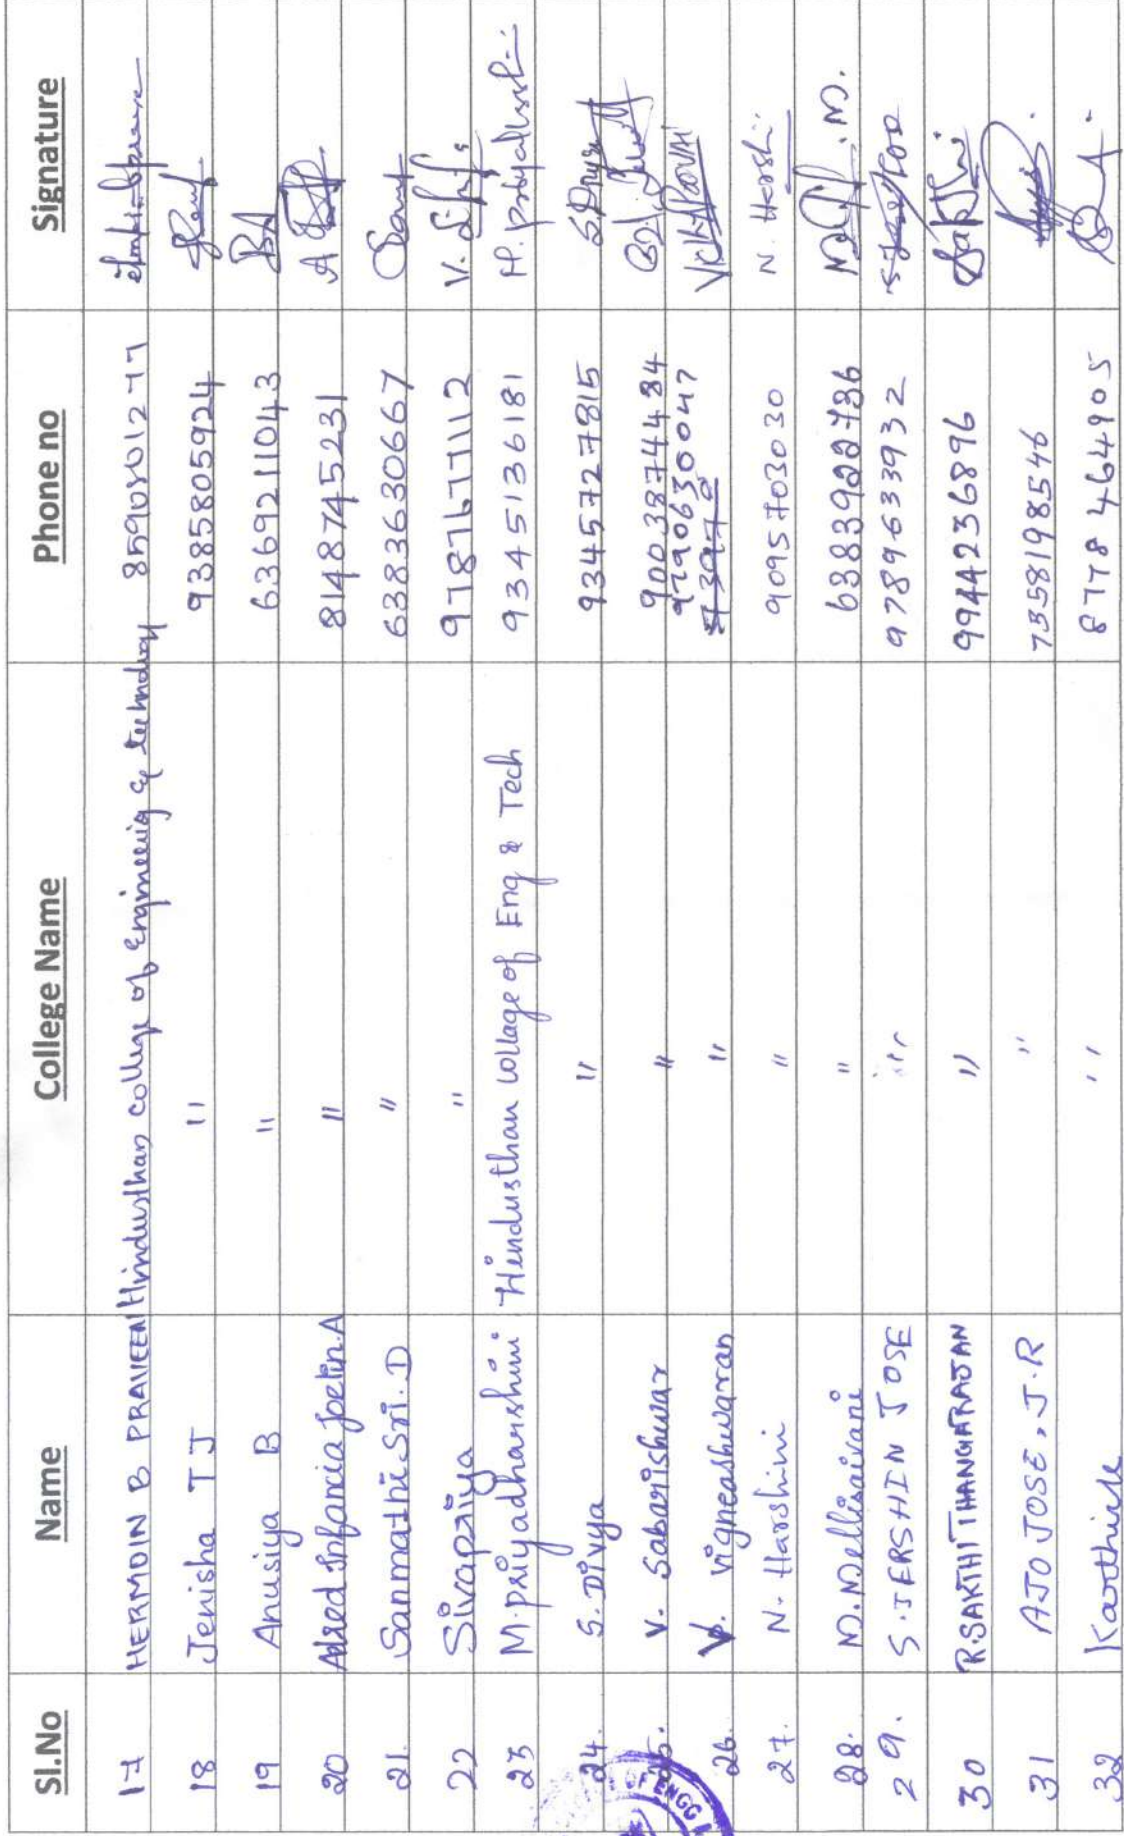 Sl.No Name College Name Phone no Signature
17 HERMOIN B PRAVEEN Hindusthan college of engineering & technology
18 Jenisha T J " 9385805924
19 Anusiya B " 6369211043 BA
20 Infancia Joelin.A " 8148745231 A
21. Sanmathi Sri. D " 6383630667
22 Sivapriya " 9787671112 V.
23 M.priyadharshini Hindusthan collage of Eng & Tech 9345136181 M. priyadharshini
24. S. Divya " 9345727815 S.Divya
25. V. Sabarishwar " 9003874484
26. V. Vigneashwaran " 9790630047
27. N. Harshini " 9095703030 N. Harshi
28. N.Nellisaivani " 6383922736
29. S.JERSHIN JOSE " 9789633932
30 R.SAKTHI THANGARAJAN " 9944236896 Sakthi
31 AJO JOSE, J.R " 7358198546
32 Karthick " 8778464905
OF ENGG